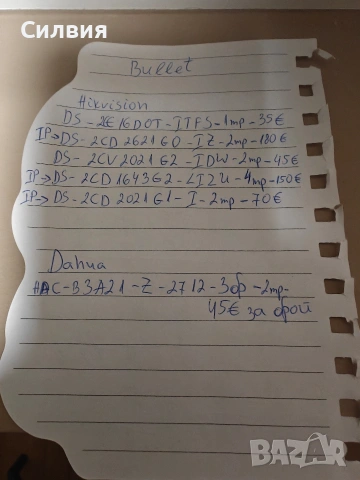 Силвия
Bullet
Hikvision
DS-2CE16D0T-ITFS-1mp-35€
IP→DS-2CD2621G0-IZ-2mp-180€
DS-2CV2021G2-IDW-2mp-45€
IP→DS-2CD1643G2-LIZU-4mp-150€
IP→DS-2CD2021G1-I-2mp-70€
Dahua
HAC-B3A21-Z-2712-3бр-2mp-
45€ за брой
BAZAR